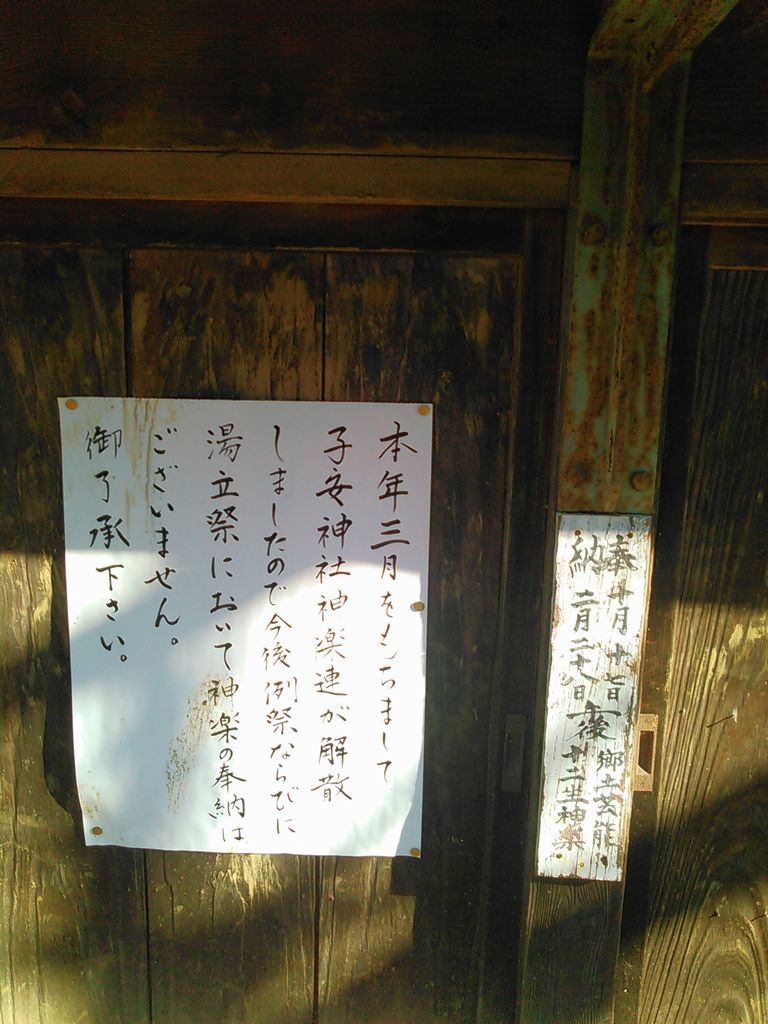 本年三月をもちまして
子安神社神楽連が解散
しましたので今後例祭ならびに
湯立祭において神楽の奉納は
ございません。
御了承下さい。
奉納
十月十七日
二月二十八日
午後
郷土芸能
廿二座神楽